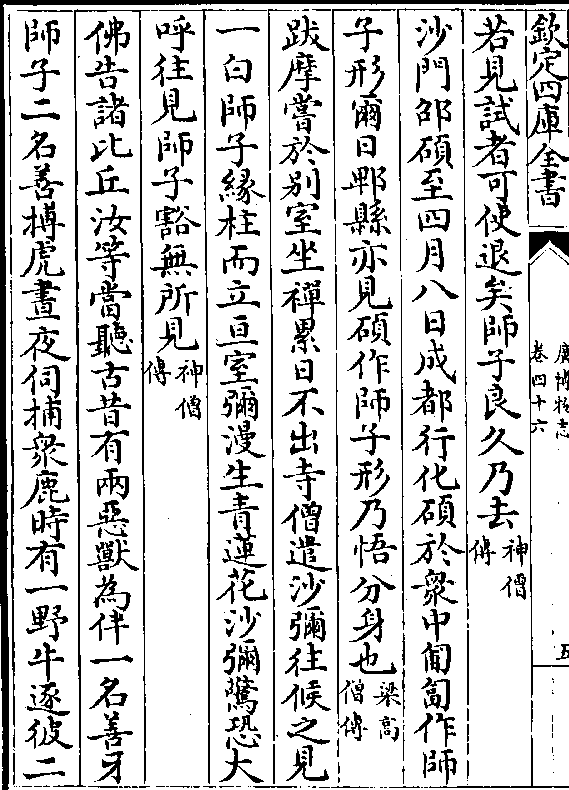 欽定四庫全書
廣博物志
卷四十六
五
若見試者可使退矣師子良久乃去神僧傳
沙門邵碩至四月八日成都行化碩於衆中匍匐作師
子形爾日郫縣亦見碩作師子形乃悟分身也梁高僧傳
跋摩嘗於别室坐禪累日不出寺僧遣沙彌往候之見
一白師子緣柱而立亘室彌漫生青蓮花沙彌驚恐大
呼往見師子豁無所見神僧傳
佛告諸比丘汝等當聽古昔有兩惡獸為伴一名善牙
師子二名善搏虎晝夜伺捕衆鹿時有一野牛逐彼二